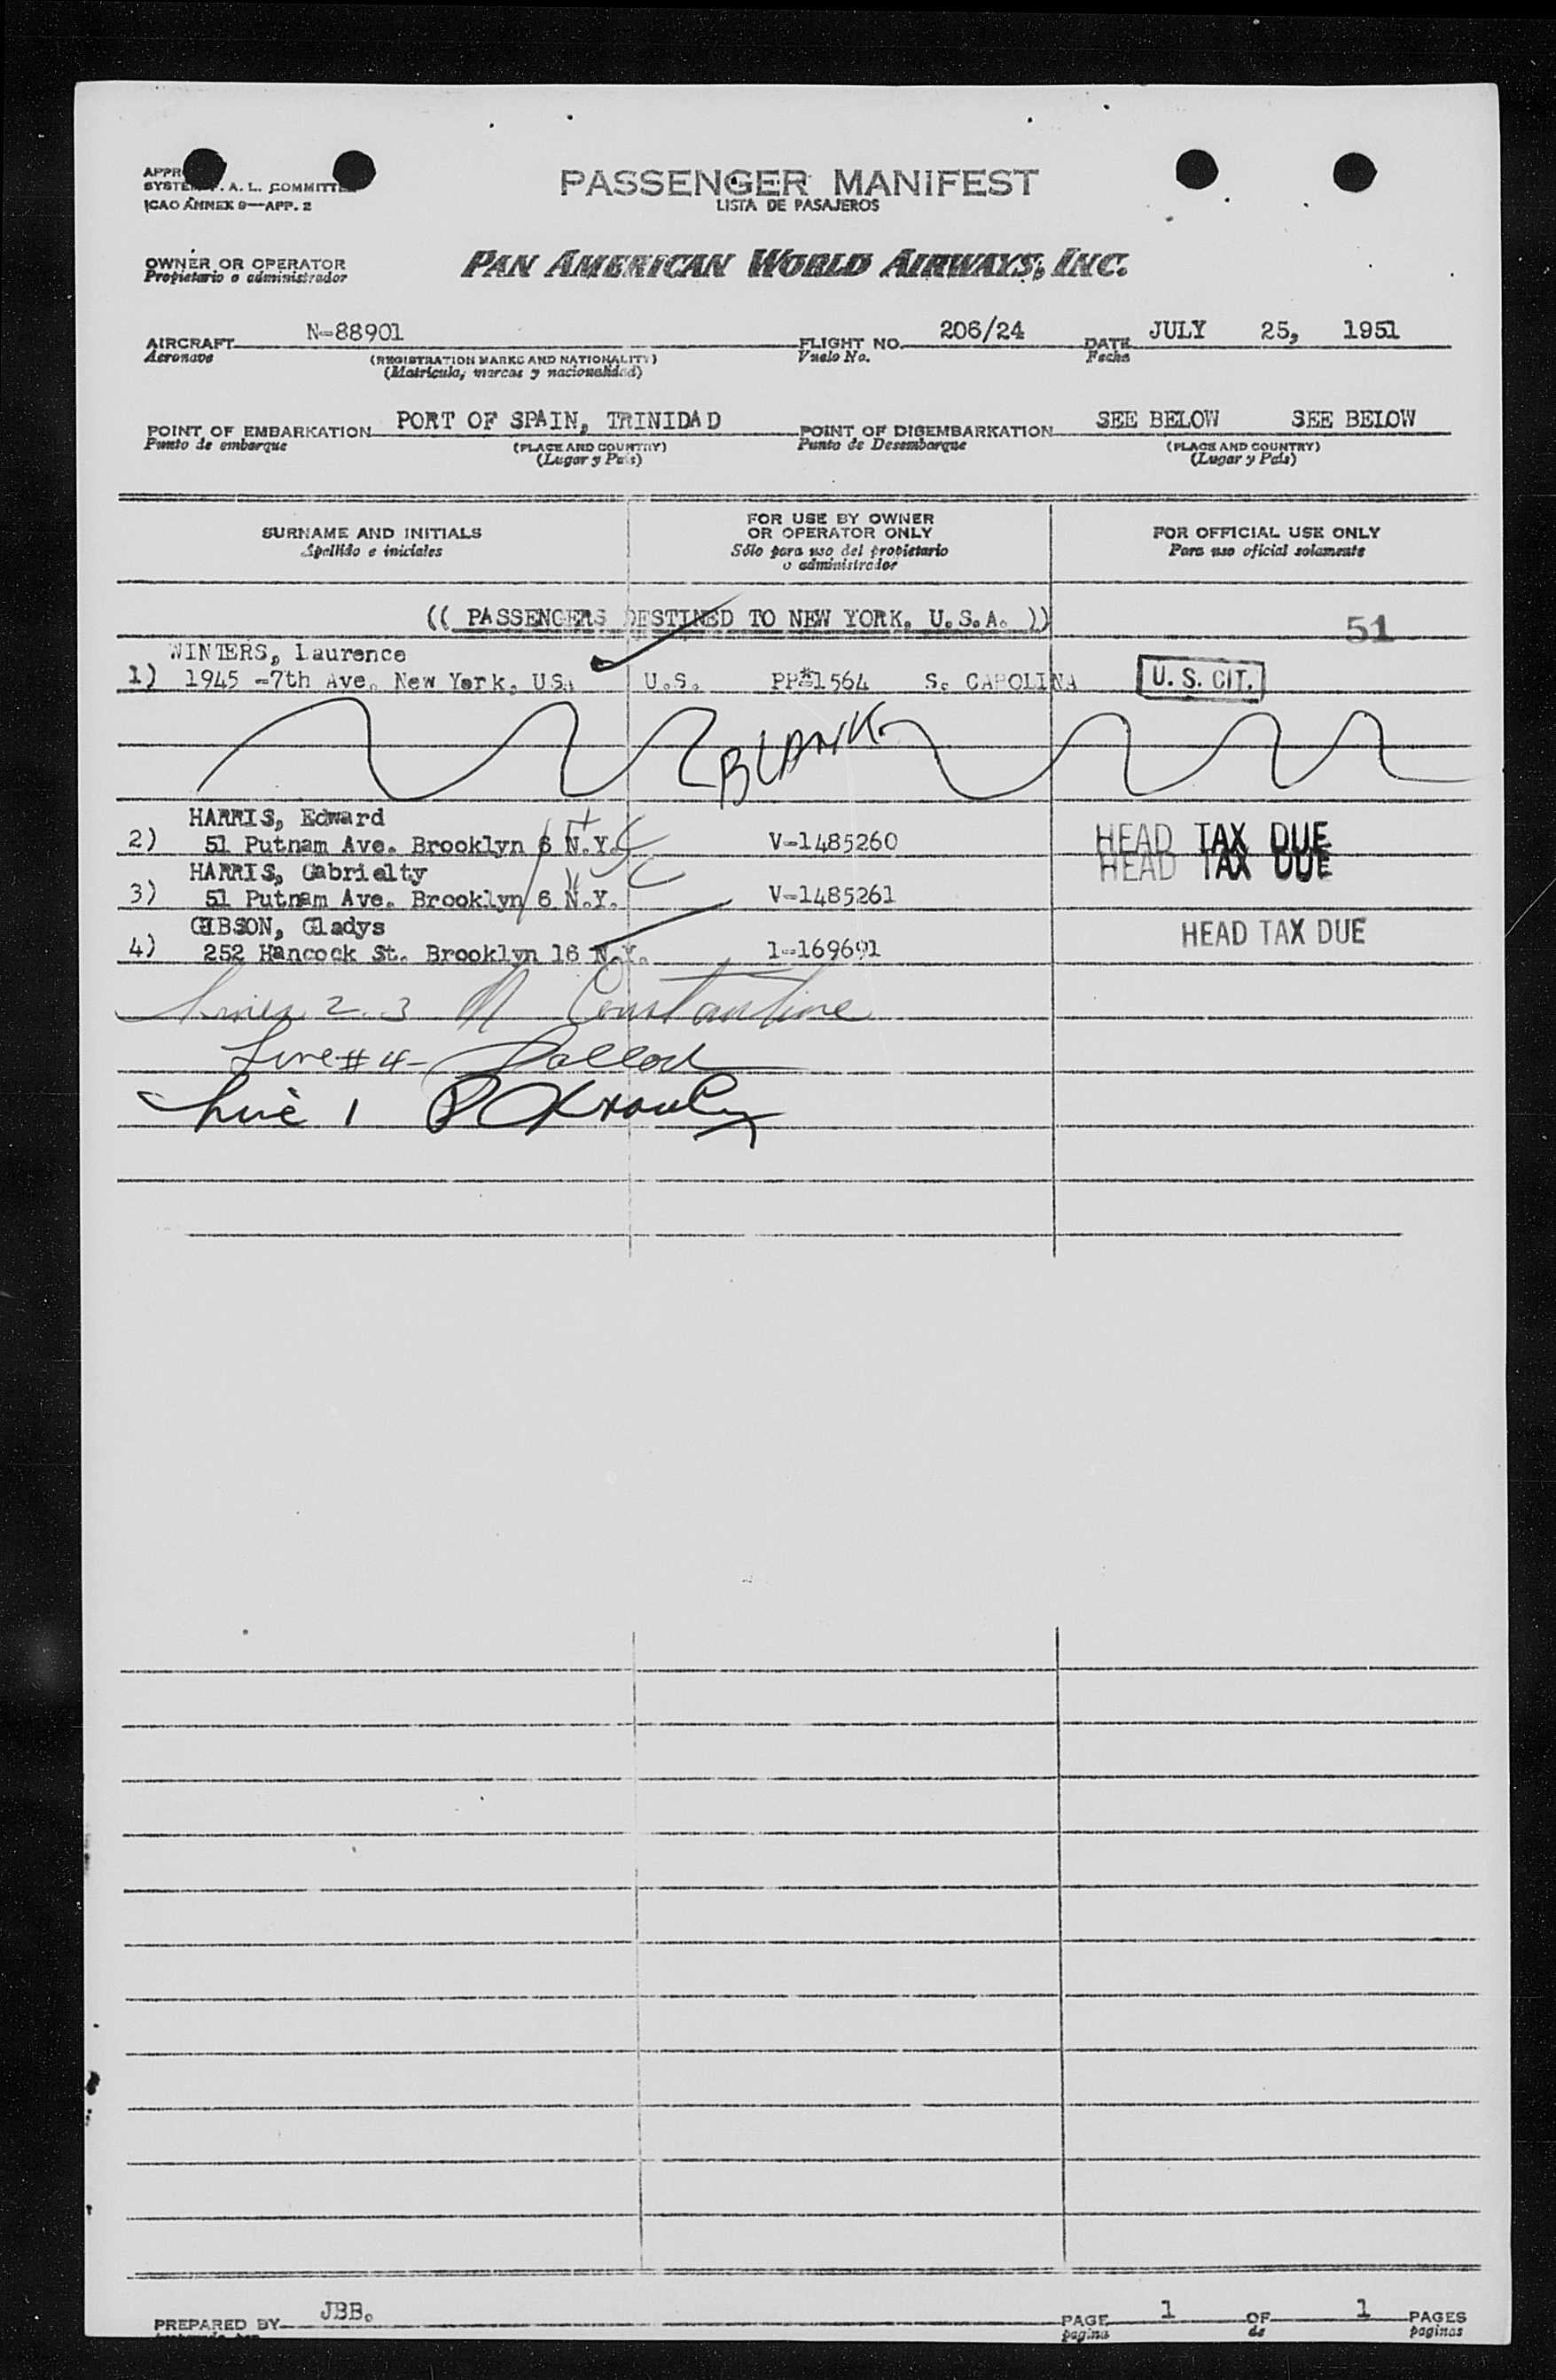 PASSENGER MANIFEST
LISTA DE PASAJEROS
SYSTEM F. A. L. COMMITTEE
ICAO ANNEX 9—APP. 2
OWNER OR OPERATOR
Propietario o administrador
PAN AMERICAN WORLD AIRWAYS, INC.
AIRCRAFT N-88901 FLIGHT NO. 206/24 DATE JULY 25, 1951
Aeronave Vuelo No. Fecha
(REGISTRATION MARKS AND NATIONALITY)
(Matrícula, marcas y nacionalidad)
POINT OF EMBARKATION PORT OF SPAIN, TRINIDAD POINT OF DISEMBARKATION SEE BELOW SEE BELOW
Punto de embarque (PLACE AND COUNTRY) Punto de Desembarque (PLACE AND COUNTRY)
(Lugar y País) (Lugar y País)
SURNAME AND INITIALS
Apellido e iniciales
FOR USE BY OWNER
OR OPERATOR ONLY
Sólo para uso del propietario
o administrador
FOR OFFICIAL USE ONLY
Para uso oficial solamente
(( PASSENGERS DESTINED TO NEW YORK, U.S.A. )) 51
WINTERS, Laurence
1) 1945 -7th Ave. New York, USA U.S. PP#1564 S. CAROLINA U. S. CIT.
BLANK
HARRIS, Edward
2) 51 Putnam Ave. Brooklyn 6 N.Y. V-1485260 HEAD TAX DUE
HEAD TAX DUE
HARRIS, Gabrielty
3) 51 Putnam Ave. Brooklyn 6 N.Y. V-1485261
GIBSON, Gladys
4) 252 Hancock St. Brooklyn 16 N.Y. 1-169691 HEAD TAX DUE
Lines 2-3 Constantine
Line #4-
Line 1
PREPARED BY JBB. PAGE 1 OF 1 PAGES
pagina de paginas